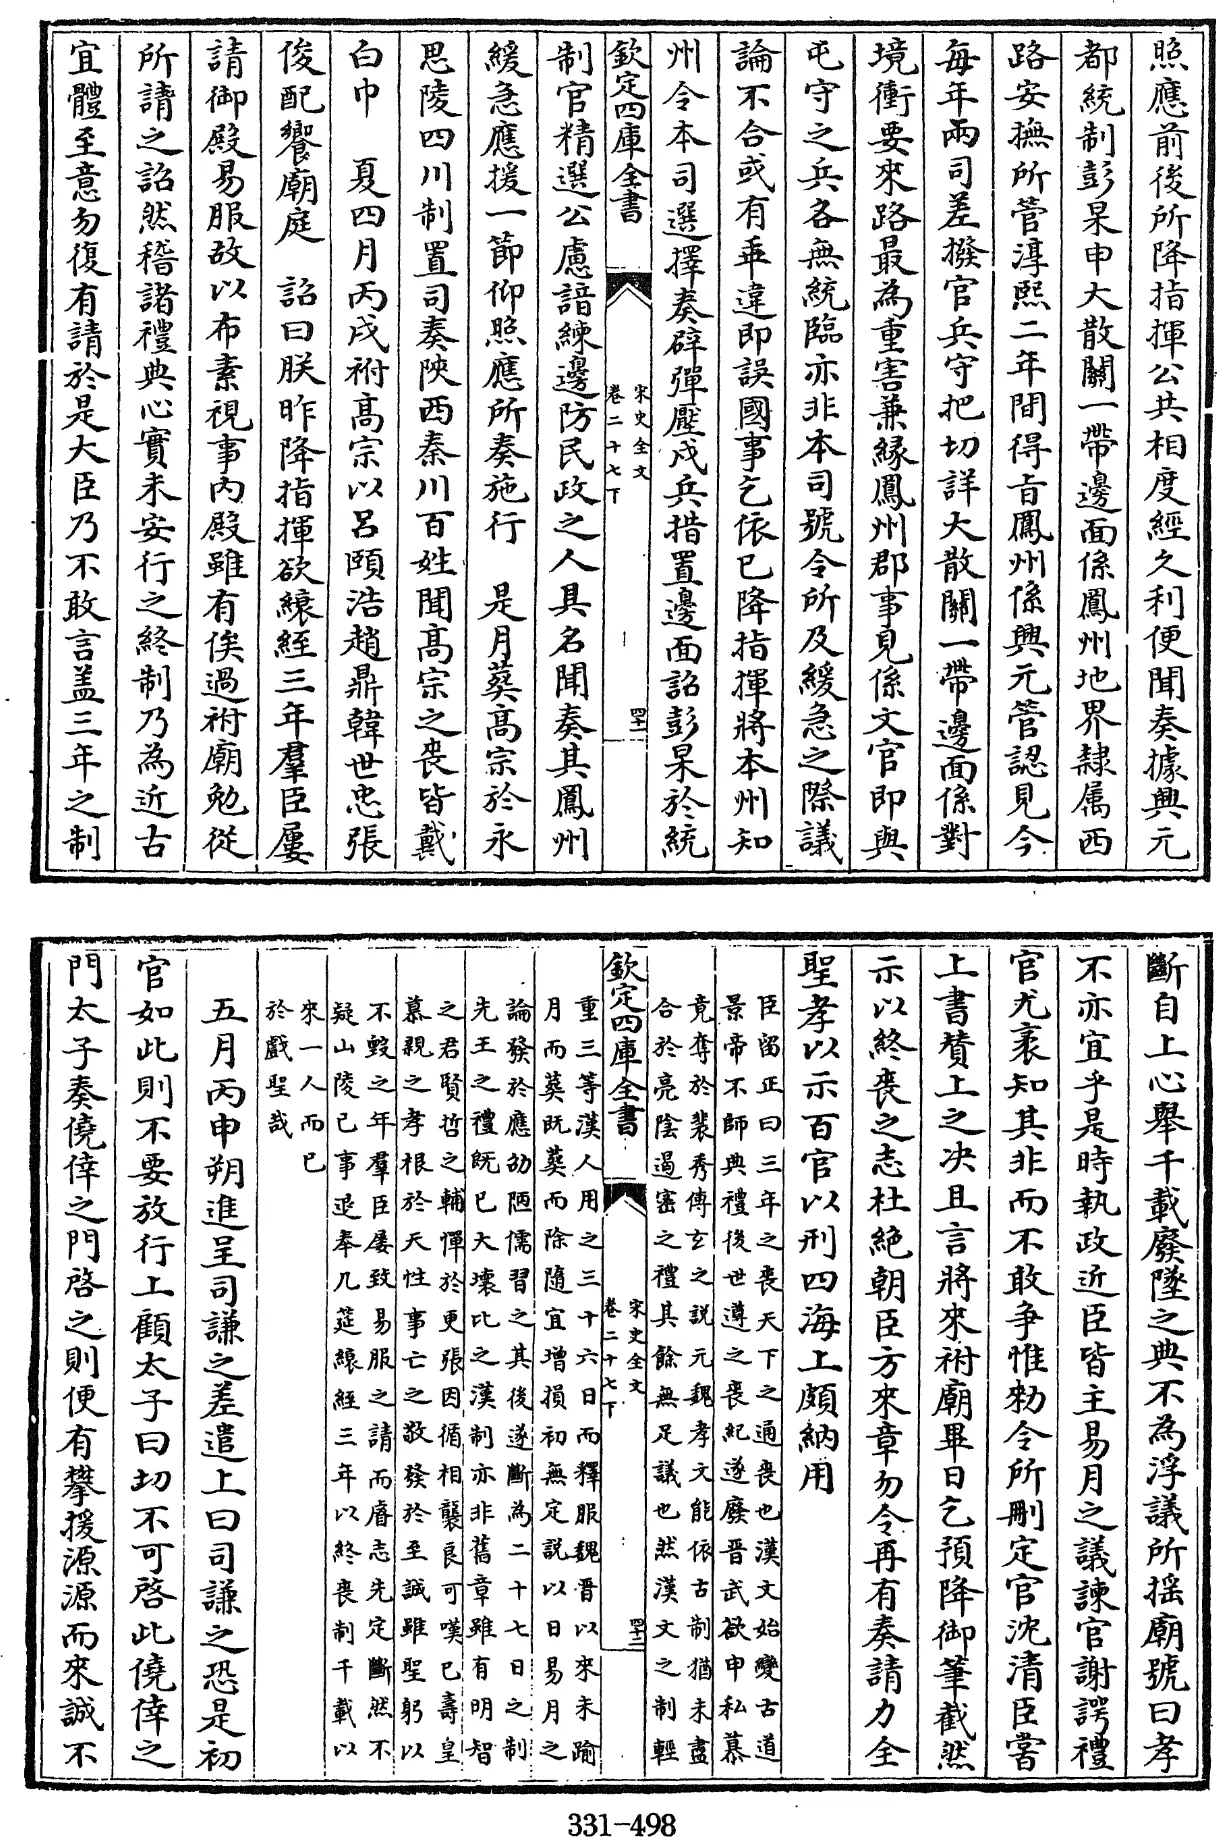 照應前後所降指揮公共相度經久利便聞奏據興元
都統制彭杲申大散關一帶邊面係鳳州地界隸属西
路安撫所管淳熙二年間得旨鳳州係興元管認見今
每年兩司差撥官兵守把切詳大散關一帶邊面係對
境衝要來路最為重害兼緣鳳州郡事見係文官即與
屯守之兵各無統臨亦非本司號令所及緩急之際議
論不合或有乖違即誤國事乞依已降指揮將本州知
州令本司選擇奏辟彈壓戍兵措置邊面詔彭杲於統
欽定四庫全書
宋史全文
卷二十七下
四十一
制官精選公慮諳練邊防民政之人具名聞奏其鳳州
緩急應援一節仰照應所奏施行　是月葬高宗於永
思陵四川制置司奏陜西秦川百姓聞高宗之喪皆戴
白巾　夏四月丙戌祔高宗以呂頤浩趙鼎韓世忠張
俊配饗廟庭　詔曰朕昨降指揮欲縗絰三年羣臣屢
請御殿易服故以布素視事内殿雖有俟過祔廟勉從
所請之詔然稽諸禮典心實未安行之終制乃為近古
宜體至意勿復有請於是大臣乃不敢言盖三年之制
斷自上心舉千載廢墜之典不為浮議所揺廟號曰孝
不亦宜乎是時執政近臣皆主易月之議諫官謝諤禮
官尤袤知其非而不敢争惟勑令所刪定官沈清臣嘗
上書賛上之决且言將來祔廟畢日乞預降御筆截然
示以終喪之志杜絶朝臣方來章勿令再有奏請力全
聖孝以示百官以刑四海上頗納用
臣留正曰三年之喪天下之通喪也漢文始變古道
景帝不師典禮後世遵之喪紀遂廢晉武欲申私慕
竟奪於裴秀傳玄之説元魏孝文能依古制猶未盡
合於亮陰遏密之禮其餘無足議也然漢文之制輕
欽定四庫全書
宋史全文
卷二十七下
四十二
重三等漢人用之三十六日而釋服魏晉以來未踰
月而葬既葬而除隨宜增損初無定説以日易月之
論發於應劭陋儒習之其後遂斷為二十七日之制
先王之禮既已大壞比之漢制亦非舊章雖有明智
之君賢哲之輔憚於更張因循相襲良可嘆已壽皇
慕親之孝根於天性事亡之敬發於至誠雖聖躬以
不毀之年羣臣屢致易服之請而睿志先定斷然不
疑山陵已事退奉几筵縗絰三年以終喪制千載以
來一人而已
於戲聖哉
五月丙申朔進呈司謙之差遣上曰司謙之恐是初
官如此則不要放行上顧太子曰切不可啓此僥倖之
門太子奏僥倖之門啓之則便有攀援源源而來誠不
331-498